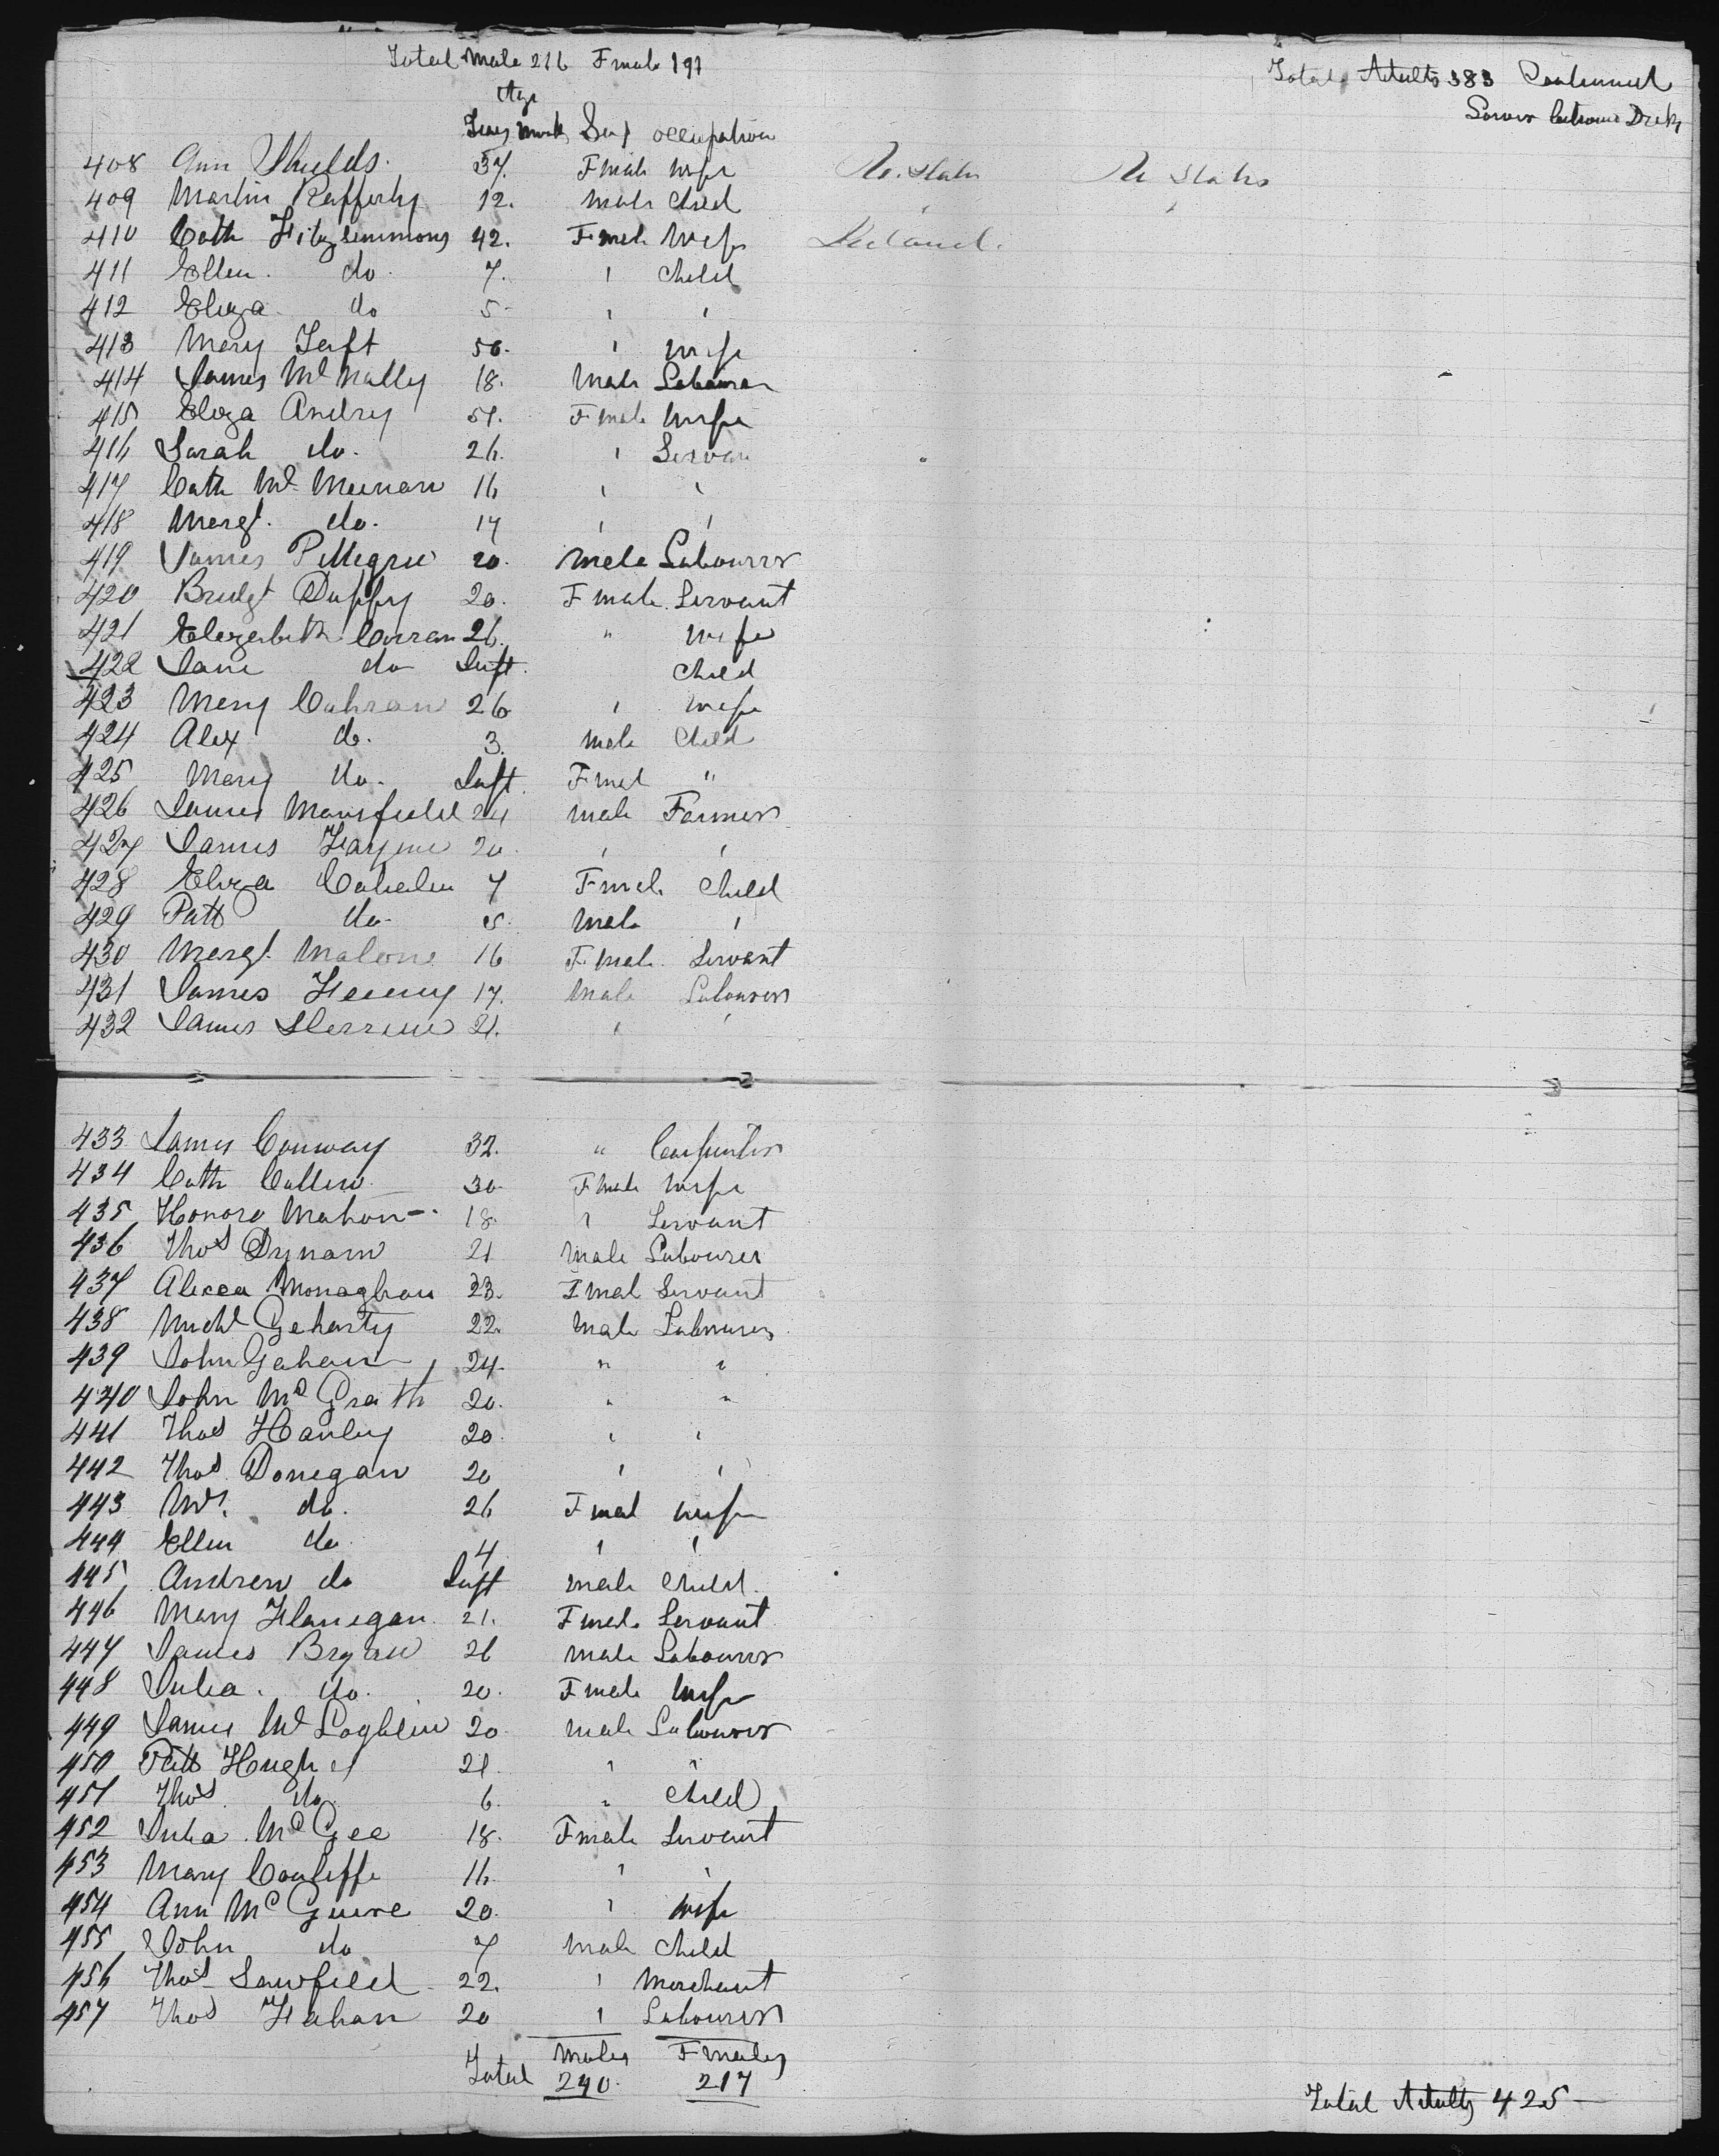 Total Male 216 Fmale 197
Total Adults 383 Continued
Lower between Decks
Age
Years Months Sex occupation
408 Ann Shields 37. Fmale wife U. States U States
409 Martin Rafferty 12. Male Child
410 Cath Fitzsimmons 42. Fmale Wife Ireland.
411 Ellen do 7. " Child
412 Eliza do 5 " "
413 Mary Taft 50. " wife
414 James McNally 18. Male Labourer
415 Eliza Andry 51. Fmale Wife
416 Sarah do. 26. " Servan
417 Cath Mc 16 " "
418 Margt. do. 14 " "
419 James Pettegrew 20. Male Labourer
420 Bridgt Duffy 20. Fmale Servant
421 Elizabeth Curran 26. " wife
422 Jane do Inft. Child
423 Mary Cahran 26 " wife
424 Alex do. 3. male Child
425 Mary do. Inft. Fmal "
426 James Mansfield 24 male Farmer
427 James 20 " "
428 Eliza 7 Fmale Child
429 Patt do 5. Male "
430 Margt. Malone 16 Fmale Servant
431 James 17. Male Labourer
432 James 21. " "
433 James Conway 32. " Carpenter
434 Cath Cullen 30 Fmale wife
435 Honora Mahon 18. " Servant
436 Thos Dynam 21 Male Labourer
437 Alicea Monaghan 23. Fmal Servant
438 Michl Geharty 22. Male Labourer
439 John Gahan 24. " "
440 John McGrath 20. " "
441 Thos Hanley 20. " "
442 Thos Donegan 20 " "
443 Mrs. do. 26 Fmal wife
444 Ellen do 4 " "
445 Andrew do Inft male Child.
446 Mary Flanegan 21. Fmale Servant
447 James Bryan 26 male Labourer
448 Julia. do. 20. Fmale wife
449 James McLoghlin 20 male Labourer
450 Patt Hughes 21. " "
451 Thos do. 6. " Child
452 Julia McGee 18. Fmale Servant
453 Mary Concliffe 16. " "
454 Ann McGuire 20. " wife
455 John do 7 Male Child
456 Thos 22. " Merchant
457 Thos Fahan 20 " Labourer
Total Males Fmales
240. 217
Total Adults 425